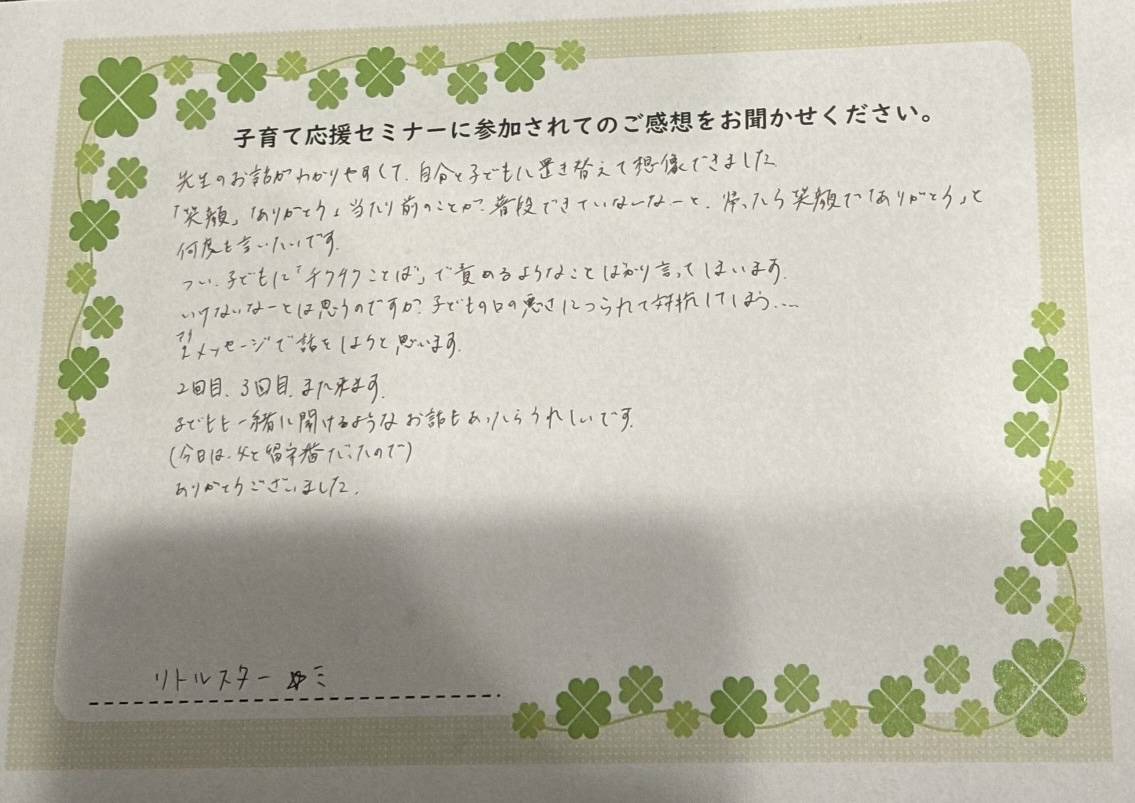 子育て応援セミナーに参加されてのご感想をお聞かせください。
先生のお話がわかりやすくて、自分と子どもに置き替えて想像できました
「笑顔」「ありがとう」当たり前のことが、普段できていないなーと、帰ったら笑顔で「ありがとう」と
何度も言いたいです。
つい、子どもに「チクチクことば」で責めるようなことばかり言ってしまいます。
いけないなーとは思うのですが、子どもの口の悪さにつられて対抗してしまう....
メッセージで話をしようと思います。
2回目、3回目、また来ます。
子どもも一緒に聞けるようなお話もあったらうれしいです。
(今日は、父と留守番だったので)
ありがとうございました。
リトルスター ミ